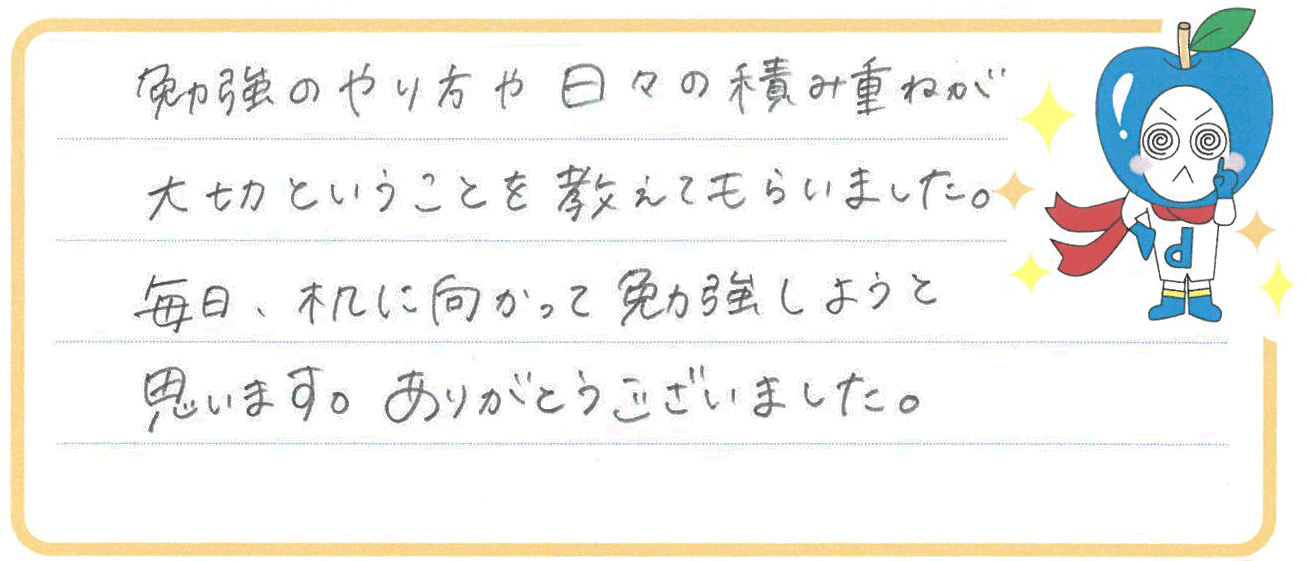 勉強のやり方や日々の積み重ねが
大切ということを教えてもらいました。
毎日、机に向かって勉強しようと
思います。ありがとうございました。
d